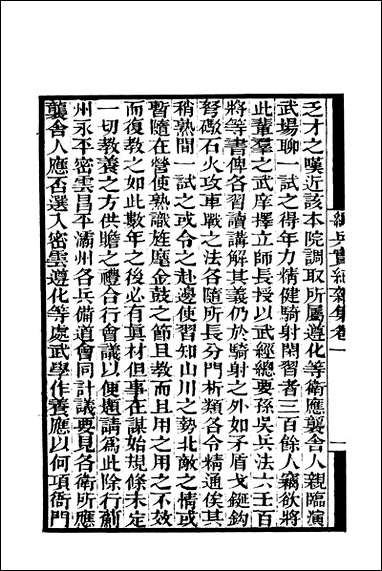 練兵實紀雜集卷一
一
乏才之嘆近該本院調取所屬遵化等衛應襲舍人親臨演
武場聊一試之得年力精健騎射閑習者三百餘人竊欲將
此輩羣之武庠擇立師長授以武經總要孫吳兵法六壬百
將等書俾各習讀講解其義仍於騎射之外如矛盾戈鋋鈎
弩礮石火攻車戰之法各隨所長分門析類各令精通俟其
稍熟間一試之或令之赴邊使習知山川之勢北敵之情或
暫隨在營使熟識旌麾金鼓之節且教而且用之用之不效
而復教之如此數年之後必有真材但事在謀始規條未定
一切教養之方供贍之禮合行會議以便題請為此除行薊
州永平密雲昌平灞州各兵備道會同計議要見各衛所應
襲舍人應否選入密雲遵化等處武學作養應以何項衙門